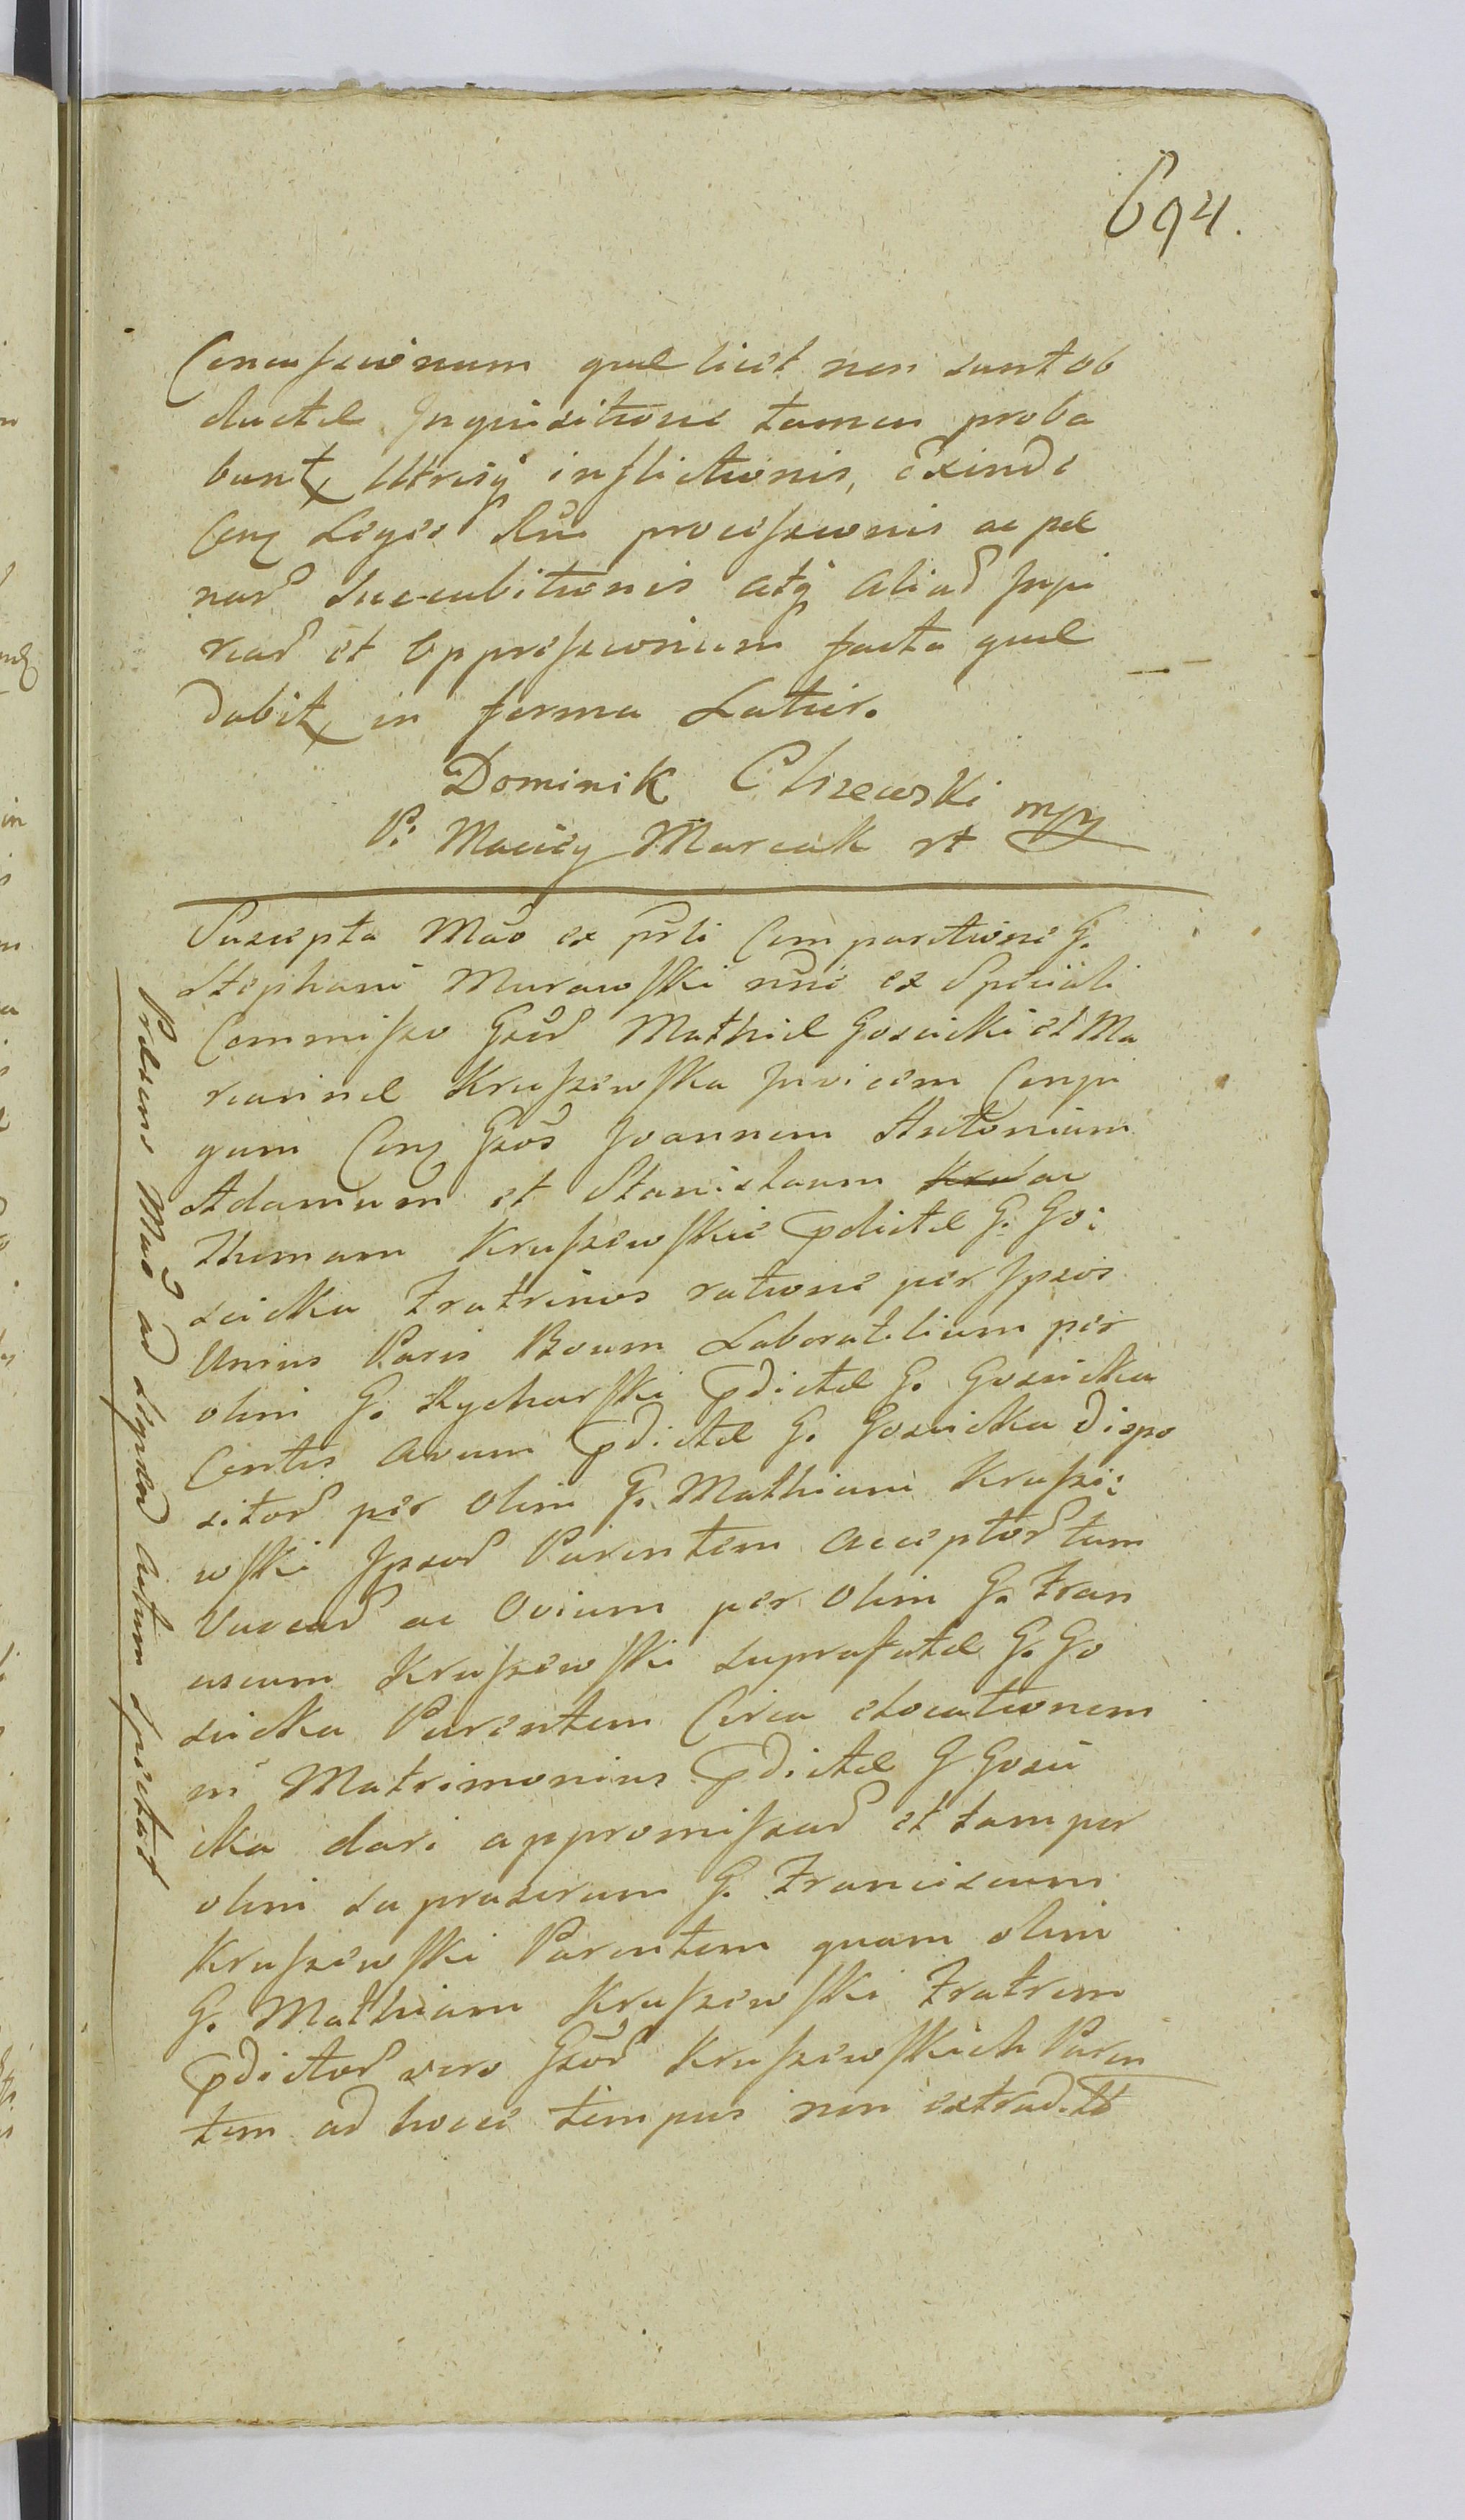 694.
Concussionum quae licet non sunt ob
ductae Inquisitione tamen proba
bunt Utrisq inflictionis, Exinde
Con Leges Rũ processionis ac pae
nar̃ Succubitionis atq̃ aliar̃ Inju
riar̃ et Oppressionum facta quae
dabit in forma Latier.
Dominik Chzewski mpp
P. Maciey Marcak st
Suscepta Mão ex p̃rli Comparitione G.
Stephani Murawski nũe ex Speciali
Commisso Gsõr Mathiae Gosicki et Ma
rcannae Kruszewska Invicem Conju
gum Con Gsõs Joannem Antonium
Adamum et Stanislaum ac
Thomam Kruszewskie pdictae G. Go:
sicka Fratrinos ratione per Ipsos
Unius Paris Boum Laboratilium per
olim G. Rycharski pdictae G. Gosicka
Contis avum pdictae G. Gosicka dispo
sitor̃ per olim G. Mathiam Krusze:
wski Ipsor̃ Parentem acceptor̃ tum
Vaccar̃ ac Ovium per olim G. Fran
uscum Kruszewski suprafatae G. Go
sicka Parentem Circa elocationem
in Matrimonius pdictae G Gosii
cka dari appromissar̃ et tam per
olim suprascrum G. Franciscum
Kruszewski Parentem quam olim
G. Mathiam Kruszewski Fratrem
pdictor̃ vero Gsõr̃ Kruszewskich Paren
tem ad hocce tempus non extradit
Praesens Mão ad Lignar̃ actum spectat